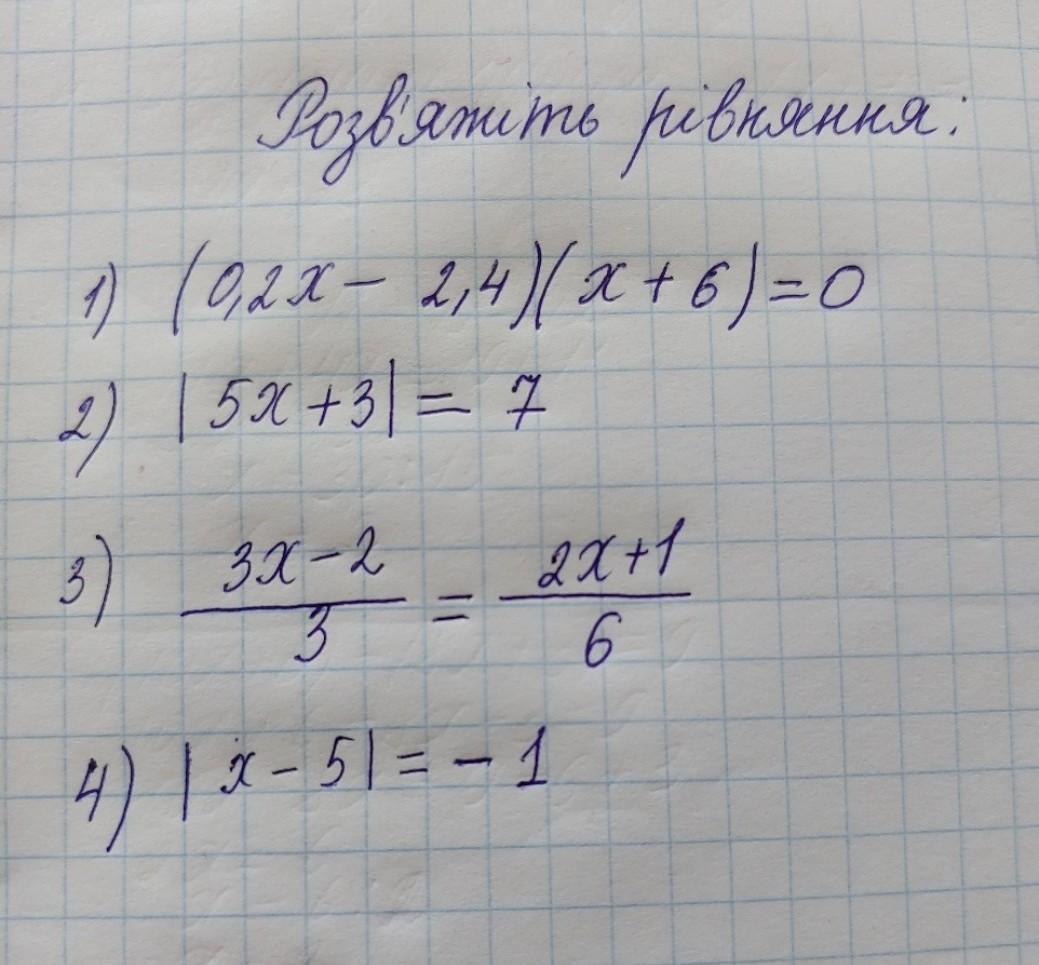 Розв'яжіть рівняння:
1) (0,2x - 2,4)(x + 6) = 0
2) |5x + 3| = 7
3) \frac{3x - 2}{3} = \frac{2x + 1}{6}
4) |x - 5| = - 1